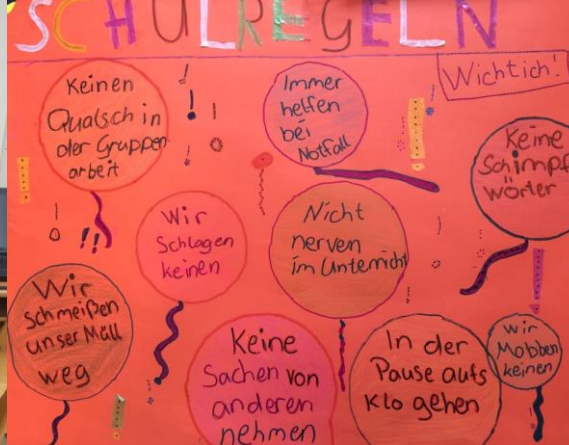 SCHULREGELN
Wichtich!
Keinen
Qualsch in
der Gruppen
arbeit
Immer
helfen
bei
Notfall
Keine
Schimpf
wörter
Wir
Schlagen
keinen
Nicht
nerven
im Unterricht
Wir
schmeißen
unser Mäll
weg
Keine
Sachen von
anderen
nehmen
In der
Pause aufs
Klo gehen
wir
Mobben
keinen